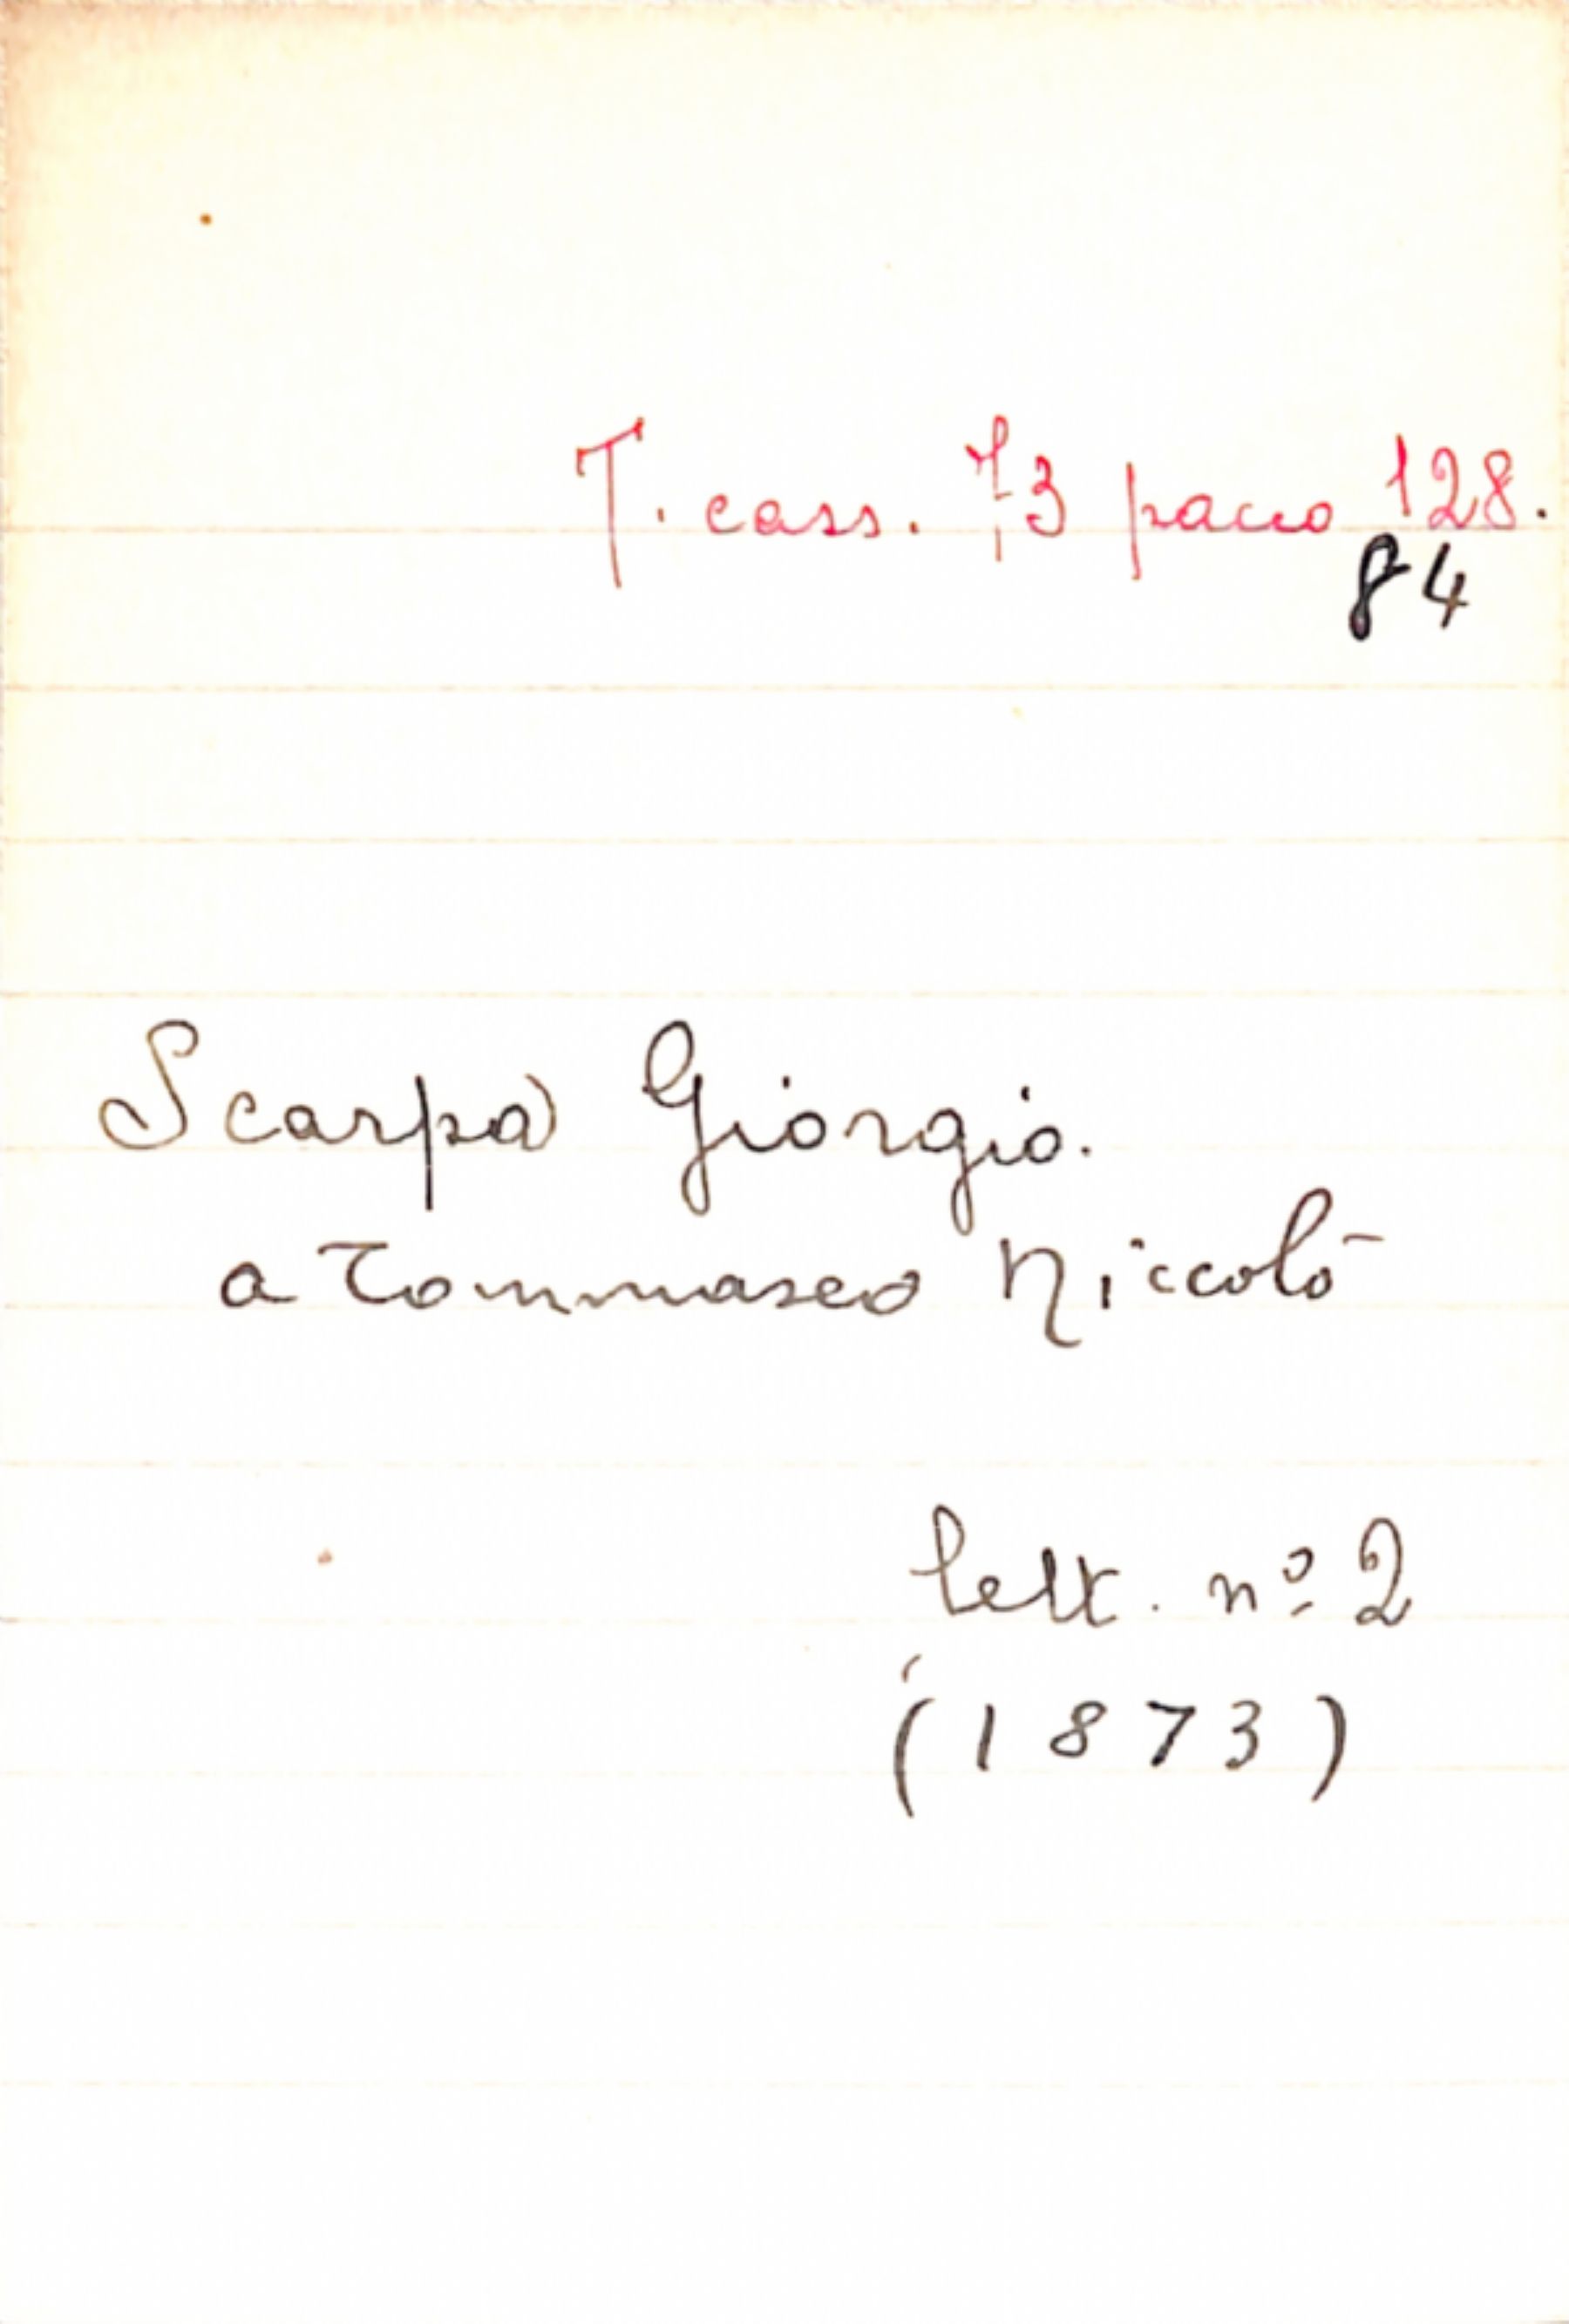 T. cass. 73 pacco 128.
84
Scarpa Giorgio.
a Tommaseo Niccolò
lett. nº 2
(1873)